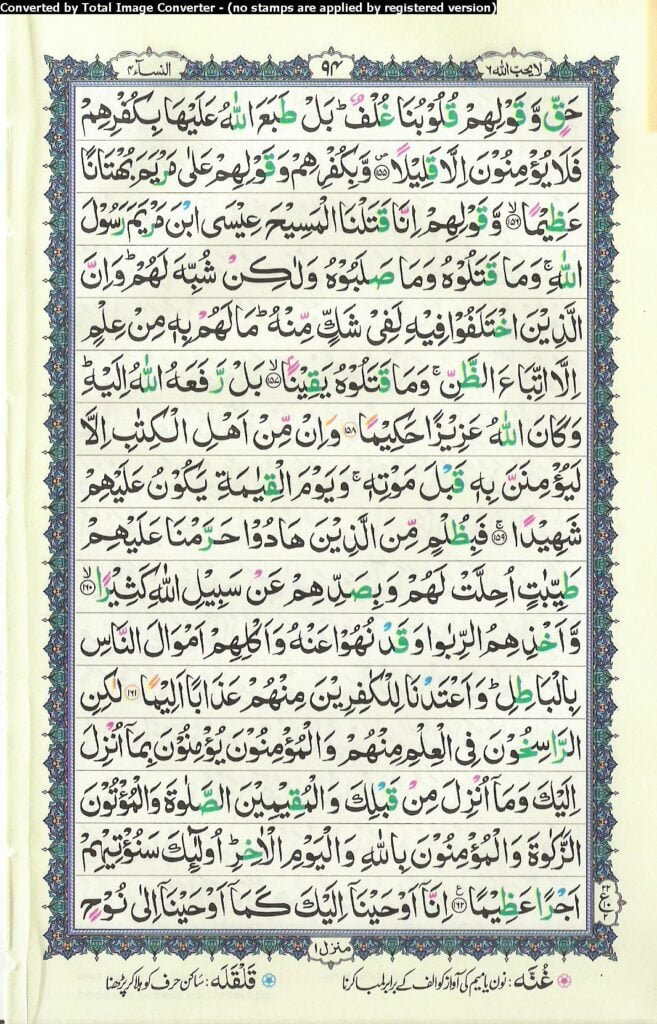 Converted by Total Image Converter - (no stamps are applied by registered version)
لا یحب اللہ ۶
۹۴
النسآء ۴
حَقٍّ وَّ قَوْلِهِمْ قُلُوْبُنَا غُلْفٌ ؕ بَلْ طَبَعَ اللّٰهُ عَلَیْهَا بِكُفْرِهِمْ
فَلَا یُؤْمِنُوْنَ اِلَّا قَلِیْلًا ۪﴿۱۵۵﴾ وَّ بِكُفْرِهِمْ وَ قَوْلِهِمْ عَلٰی مَرْیَمَ بُهْتَانًا
عَظِیْمًا ﴿۱۵۶﴾ۙ وَّ قَوْلِهِمْ اِنَّا قَتَلْنَا الْمَسِیْحَ عِیْسَی ابْنَ مَرْیَمَ رَسُوْلَ
اللّٰهِ ۚ وَمَا قَتَلُوْهُ وَمَا صَلَبُوْهُ وَلٰكِنْ شُبِّهَ لَهُمْ ؕ وَاِنَّ
الَّذِیْنَ اخْتَلَفُوْا فِیْهِ لَفِیْ شَكٍّ مِّنْهُ ؕ مَا لَهُمْ بِهٖ مِنْ عِلْمٍ
اِلَّا اتِّبَاعَ الظَّنِّ ۚ وَمَا قَتَلُوْهُ یَقِیْنًۢا ﴿۱۵۷﴾ۙ بَلْ رَّفَعَهُ اللّٰهُ اِلَیْهِ ؕ
وَكَانَ اللّٰهُ عَزِیْزًا حَكِیْمًا ﴿۱۵۸﴾ وَاِنْ مِّنْ اَهْلِ الْكِتٰبِ اِلَّا
لَیُؤْمِنَنَّ بِهٖ قَبْلَ مَوْتِهٖ ۚ وَیَوْمَ الْقِیٰمَةِ یَكُوْنُ عَلَیْهِمْ
شَهِیْدًا ﴿۱۵۹﴾ۚ فَبِظُلْمٍ مِّنَ الَّذِیْنَ هَادُوْا حَرَّمْنَا عَلَیْهِمْ
طَیِّبٰتٍ اُحِلَّتْ لَهُمْ وَبِصَدِّهِمْ عَنْ سَبِیْلِ اللّٰهِ كَثِیْرًا ﴿۱۶۰﴾ۙ
وَّاَخْذِهِمُ الرِّبٰوا وَقَدْ نُهُوْا عَنْهُ وَاَكْلِهِمْ اَمْوَالَ النَّاسِ
بِالْبَاطِلِ ؕ وَاَعْتَدْنَا لِلْكٰفِرِیْنَ مِنْهُمْ عَذَابًا اَلِیْمًا ﴿۱۶۱﴾ لٰكِنِ
الرّٰسِخُوْنَ فِی الْعِلْمِ مِنْهُمْ وَالْمُؤْمِنُوْنَ یُؤْمِنُوْنَ بِمَاۤ اُنْزِلَ
اِلَیْكَ وَمَاۤ اُنْزِلَ مِنْ قَبْلِكَ وَالْمُقِیْمِیْنَ الصَّلٰوةَ وَالْمُؤْتُوْنَ
الزَّكٰوةَ وَالْمُؤْمِنُوْنَ بِاللّٰهِ وَالْیَوْمِ الْاٰخِرِ ؕ اُولٰٓئِكَ سَنُؤْتِیْهِمْ
اَجْرًا عَظِیْمًا ﴿۱۶۲﴾ع اِنَّاۤ اَوْحَیْنَاۤ اِلَیْكَ كَمَاۤ اَوْحَیْنَاۤ اِلٰی نُوْحٍ
منزل ۱
غُنَّه: نون یا میم کی آواز کو الف کے برابر لمبا کرنا
قَلْقَلَه: ساکن حرف کو ہلا کر پڑھنا